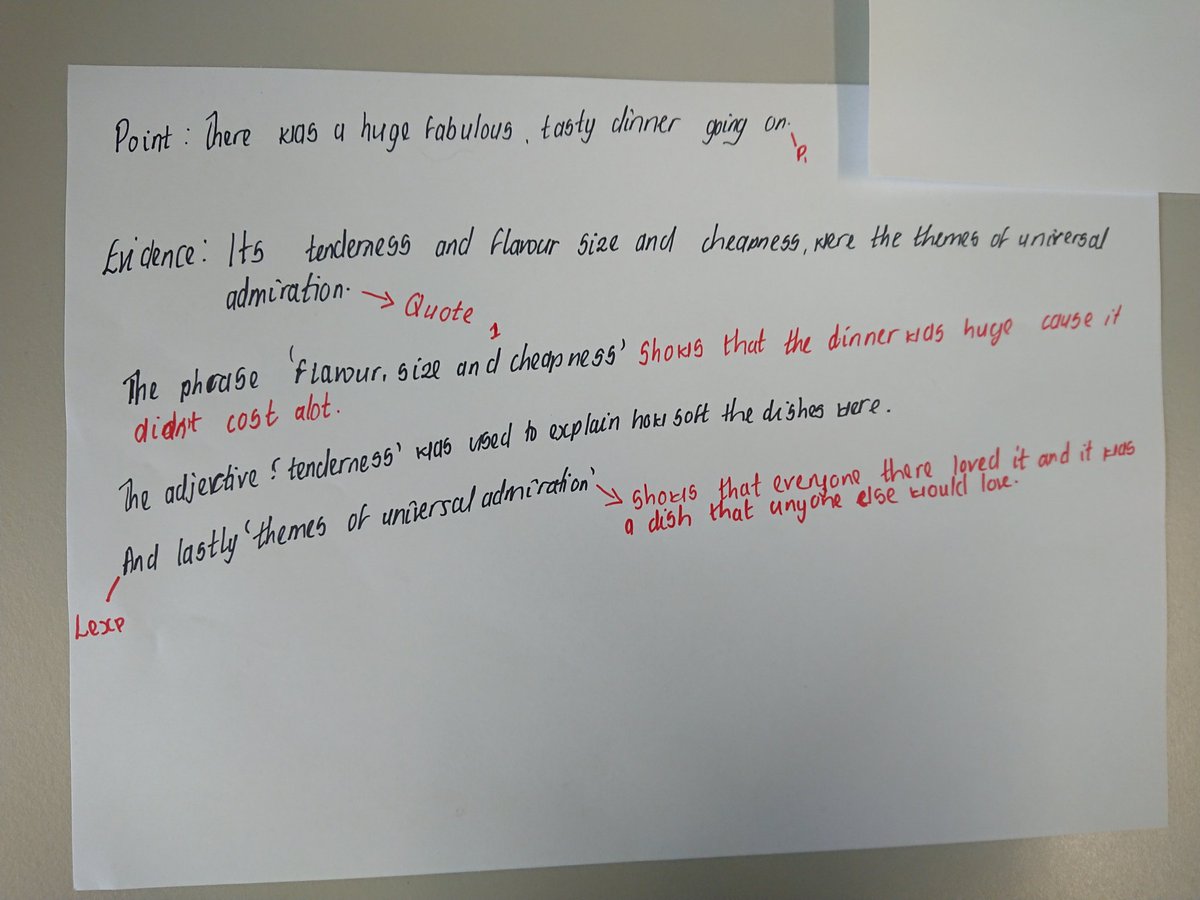 Point: There was a huge fabulous, tasty dinner going on.
P.
Evidence: Its tenderness and flavour size and cheapness, were the themes of universal
admiration. → Quote
1
The phrase 'flavour, size and cheapness' shows that the dinner was huge cause it
didn't cost alot.
The adjective 'tenderness' was used to explain how soft the dishes were.
And lastly 'themes of universal admiration' → shows that everyone there loved it and it was
a dish that anyone else would love.
Lexp